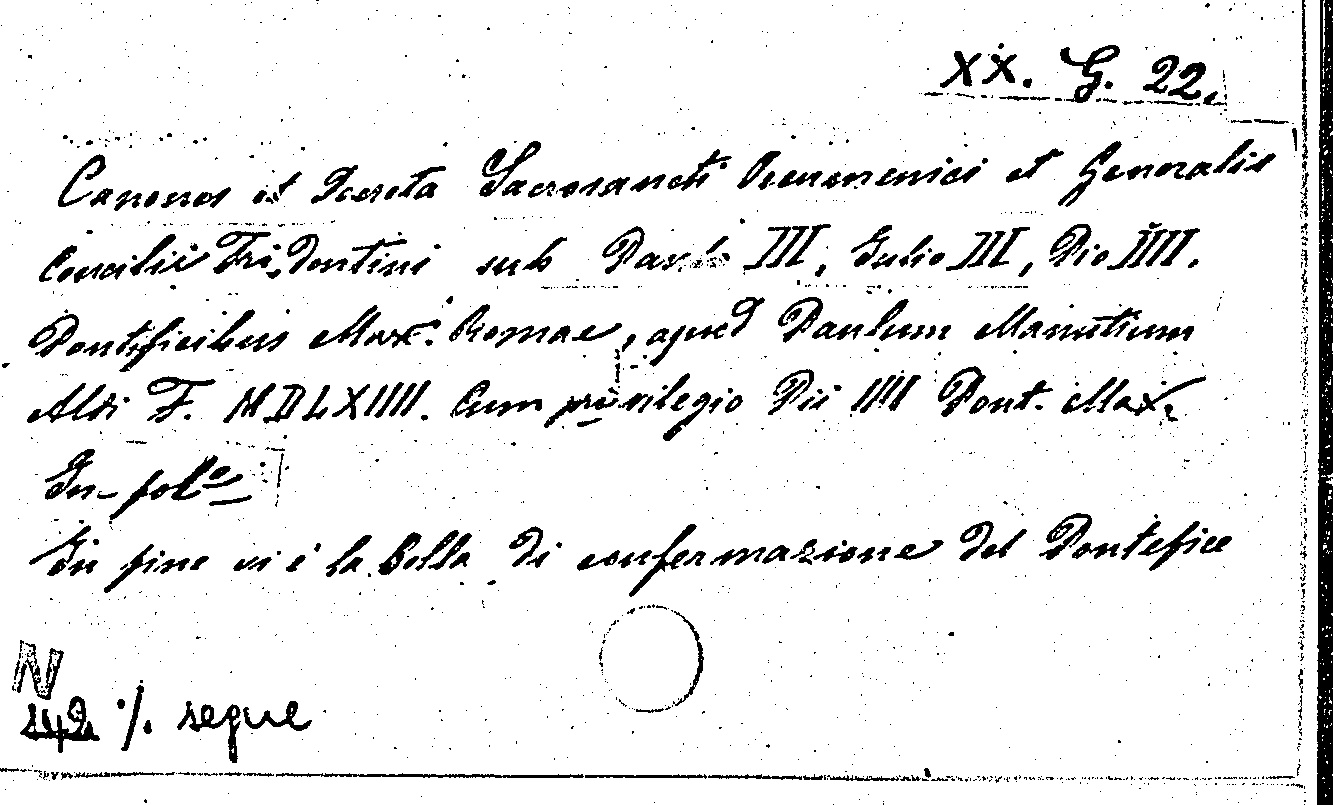 XX. G. 22.
Canones et Decreta Sacrosancti Oecumenici et Generalis
Concilii Tridentini sub Paulo III, Iulio III, Pio IIII.
Pontificibus Max. Romae, apud Paulum Manutium
Aldi F. MDLXIIII. Cum privilegio Pii IIII Pont. Max.
In-folº
In fine vi è la Bolla di confermazione del Pontefice
N
142 ./. segue